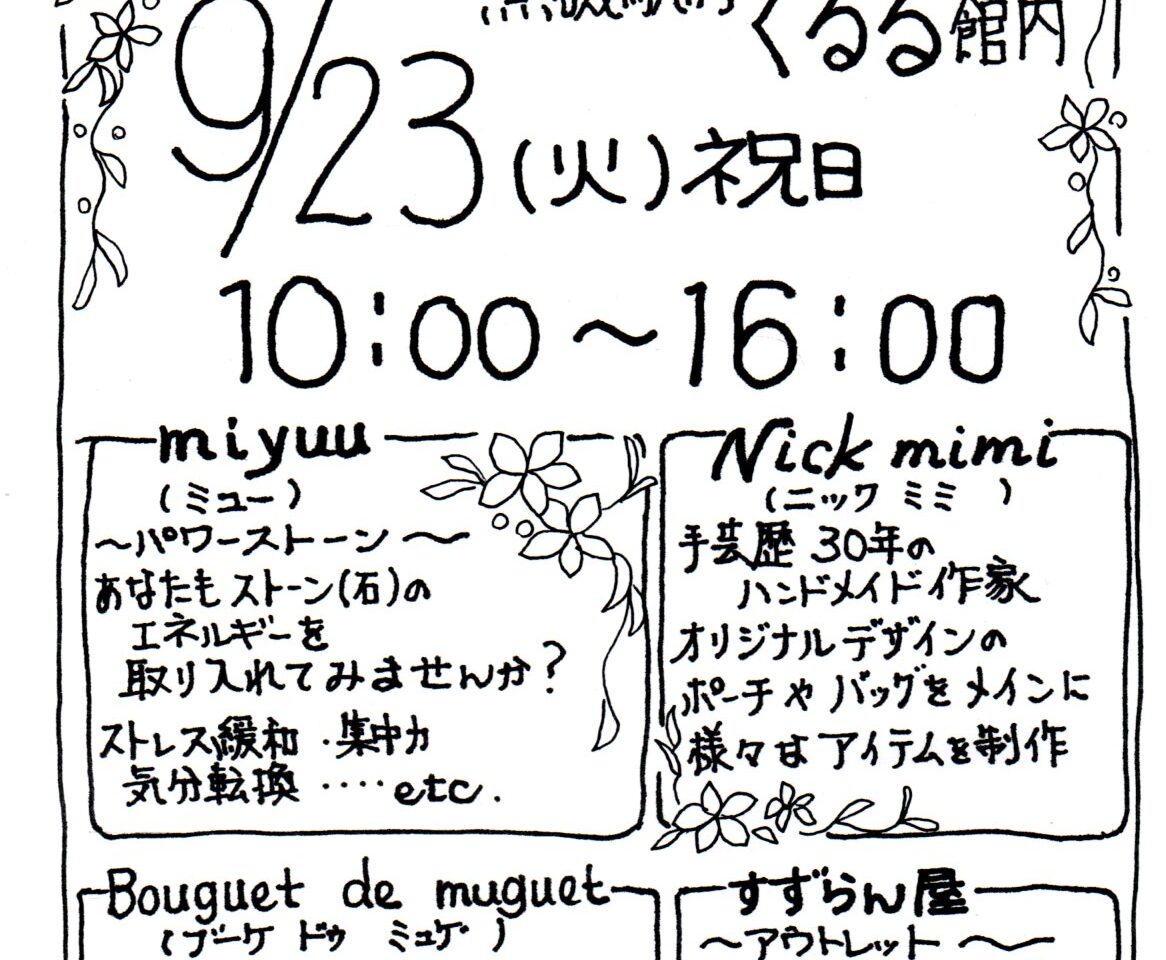 くるる館内
9/23(火)祝日
10:00～16:00
miyuu
(ミュー)
～パワーストーン～
あなたもストーン(石)の
エネルギーを
取り入れてみませんか?
ストレス緩和・集中力
気分転換‥‥etc.
Nick mimi
(ニック ミミ)
手芸歴 30年の
ハンドメイド作家
オリジナルデザインの
ポーチや バッグをメインに
様々なアイテムを制作
Bouguet de muguet
(ブーケ ドゥ ミュゲ)
すずらん屋
～アウトレット～